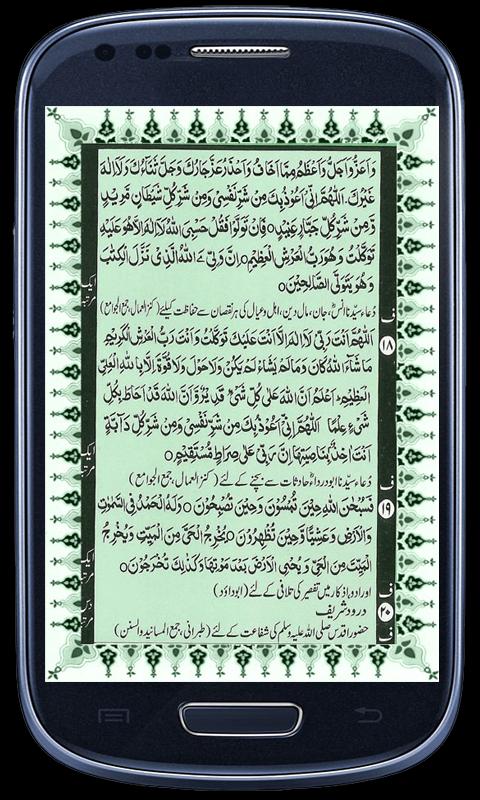 وَاَعَزُّ وَاَجَلُّ وَاَعْظَمُ مِمَّا اَخَافُ وَاَحْذَرُ عَزَّجَارُكَ وَجَلَّ ثَنَاۤئُكَ وَلَاۤ اِلٰهَ
غَيْرُكَ۔ اَللّٰهُمَّ اِنِّيْ اَعُوْذُبِكَ مِنْ شَرِّ نَفْسِيْ وَمِنْ شَرِّ كُلِّ شَيْطَانٍ مَّرِيْدٍ
وَّمِنْ شَرِّ كُلِّ جَبَّارٍ عَنِيْدٍ ۝ فَاِنْ تَوَلَّوْا فَقُلْ حَسْبِيَ اللهُ لَاۤ اِلٰهَ اِلَّا هُوَ عَلَيْهِ
تَوَكَّلْتُ وَهُوَ رَبُّ الْعَرْشِ الْعَظِيْمِ ۝ اِنَّ وَلِيِّ َۧ اللهُ الَّذِيْ نَزَّلَ الْكِتٰبَ
وَهُوَ يَتَوَلَّى الصَّالِحِيْنَ ۝
ایک مرتبہ
ف
دُعاء سیّدنا انسؓ، جان، مال، دین، اہل و عیال کی ہر نقصان سے حفاظت کیلئے (کنز العمال، جمع الجوامع)
۱۸
اَللّٰهُمَّ اَنْتَ رَبِّيْ لَاۤ اِلٰهَ اِلَّاۤ اَنْتَ عَلَيْكَ تَوَكَّلْتُ وَاَنْتَ رَبُّ الْعَرْشِ الْكَرِيْمِ
مَا شَآءَ اللهُ كَانَ وَمَا لَمْ يَشَاْ لَمْ يَكُنْ وَلَا حَوْلَ وَلَا قُوَّةَ اِلَّا بِاللهِ الْعَلِيِّ
الْعَظِيْمِ، اَعْلَمُ اَنَّ اللهَ عَلٰى كُلِّ شَيْءٍ قَدِيْرٌ وَّاَنَّ اللهَ قَدْ اَحَاطَ بِكُلِّ
شَيْءٍ عِلْمًا۔ اَللّٰهُمَّ اِنِّيْ اَعُوْذُبِكَ مِنْ شَرِّ نَفْسِيْ وَمِنْ شَرِّ كُلِّ دَآبَّةٍ
اَنْتَ اٰخِذٌۢ بِنَاصِيَتِهَا اِنَّ رَبِّيْ عَلٰى صِرَاطٍ مُّسْتَقِيْمٍ ۝
ایک مرتبہ
ف
دُعاء سیّدنا ابودرداءؓ حادثات سے بچنے کے لئے (کنز العمال، جمع الجوامع)
۱۹
فَسُبْحٰنَ اللهِ حِيْنَ تُمْسُوْنَ وَحِيْنَ تُصْبِحُوْنَ ۝ وَلَهُ الْحَمْدُ فِي السَّمٰوٰتِ
وَالْاَرْضِ وَعَشِيًّا وَّحِيْنَ تُظْهِرُوْنَ ۝ يُخْرِجُ الْحَيَّ مِنَ الْمَيِّتِ وَيُخْرِجُ
الْمَيِّتَ مِنَ الْحَيِّ وَيُحْيِ الْاَرْضَ بَعْدَ مَوْتِهَا وَكَذٰلِكَ تُخْرَجُوْنَ ۝
ایک مرتبہ
ف
اوراد و اذکار میں تقصیر کی تلافی کے لئے (ابو داؤد)
۲۰
درود شریف
دس مرتبہ
ف
حضور اقدس صلی اللہ علیہ وسلم کی شفاعت کے لئے (طبرانی، جمع المسانید والسنن)